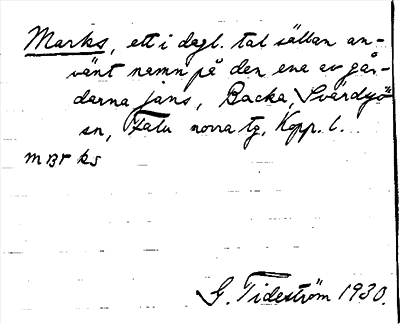 Marks, ett i dagl. tal sällan an-
vänt namn på den ena av går-
darna Jans, Backa, Svärdsjö
sn, Falu norra tg, Kopp. l.
G. Tideström 1930.